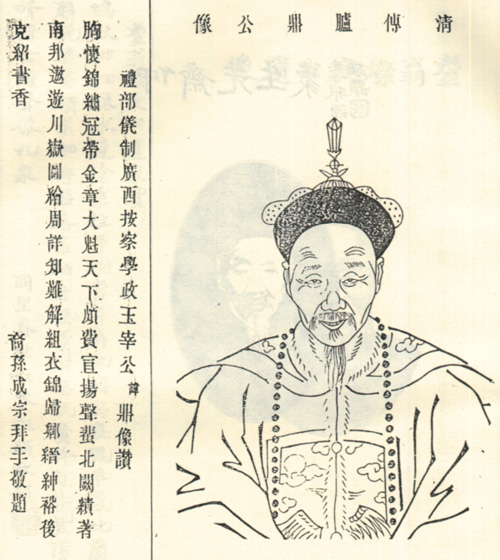 清傳臚鼎公像
禮部儀制廣西按察學政玉宰公諱鼎像讚
胸懷錦繡冠帶金章大魁天下頗費宣揚聲蜚北闕績著
南邦遨遊川嶽圖繪周詳知難解組衣錦歸鄉縉紳裕後
克紹書香
裔孫成宗拜手敬題